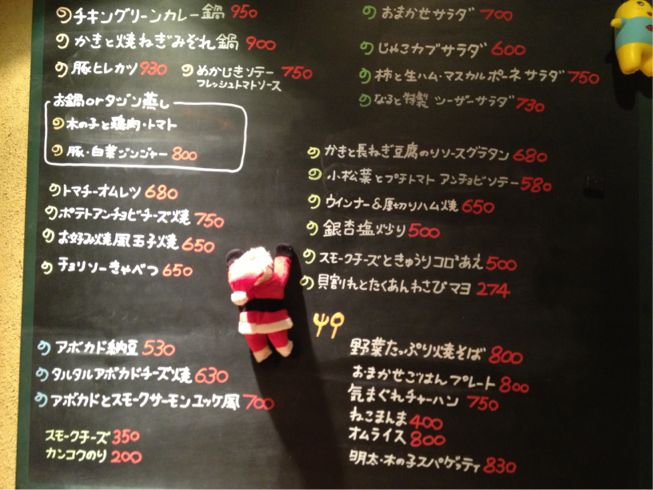 チキングリーンカレー鍋 950
かきと焼ねぎみぞれ鍋 900
豚ヒレカツ 930
めかじきソテー 750
フレッシュトマトソース
お鍋orタジン蒸し
木の子と鶏肉・トマト
豚・白菜ジンジャー 800
トマチーオムレツ 680
ポテトアンチョビチーズ焼 750
お好み焼風玉子焼 650
チョリソーきゃべつ 650
アボカド納豆 530
タルタルアボカドチーズ焼 630
アボカドとスモークサーモンユッケ風 700
スモークチーズ 350
カンコクのり 200
おまかせサラダ 700
じゃこカブサラダ 600
柿と生ハム・マスカルポーネサラダ 750
なると特製 シーザーサラダ 730
かきと長ねぎ豆腐のりソースグラタン 680
小松菜とプチトマト アンチョビソテー 580
ウインナー&厚切りハム焼 650
銀杏塩炒り 500
スモークチーズときゅうりコロコロあえ 500
貝割れとたくあんわさびマヨ 274
野菜たっぷり焼そば 800
おまかせごはんプレート 800
気まぐれチャーハン 750
ねこまんま 400
オムライス 800
明太・木の子スパゲッティ 830